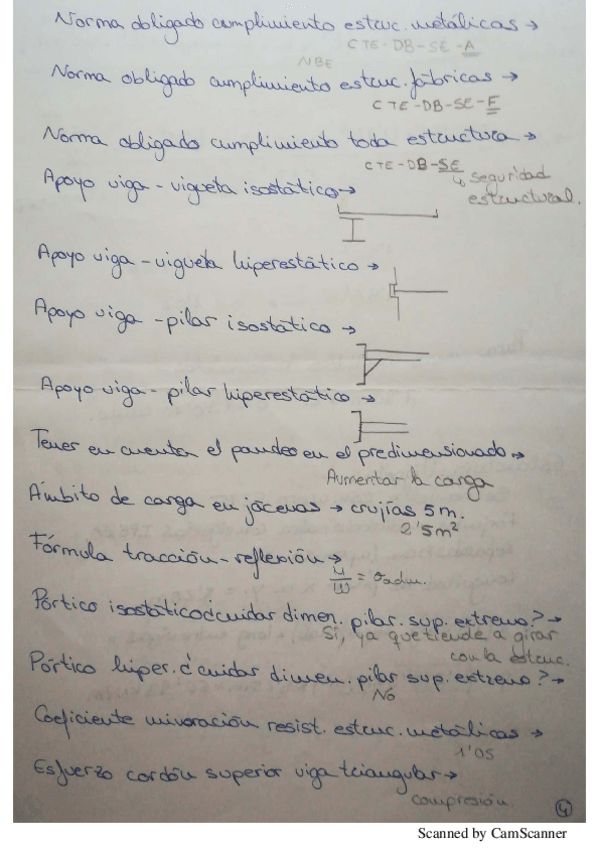 Norma obligado cumplimiento estruc. metálicas →
CTE-DB-SE-A
NBE
Norma obligado cumplimiento estruc. fábricas →
CTE-DB-SE-F
Norma obligado cumplimiento toda estructura →
CTE-DB-SE
↳ seguridad
estructural.
Apoyo viga - vigueta isostático →
Apoyo viga - vigueta hiperestático →
Apoyo viga - pilar isostático →
Apoyo viga - pilar hiperestático →
Tener en cuenta el pandeo en el predimensionado →
Aumentar la carga
Ámbito de carga en jácenas → crujías 5 m.
2'5m²
Fórmula tracción-reflexión →
M/W = σadm.
Pórtico isostático ¿cuidar dimen. pilar. sup. extremo? →
Sí, ya que tiende a girar
con la estruc.
Pórtico hiper. ¿cuidar dimen. pilar sup. extremo? →
No
Coeficiente minoración resist. estruc. metálicas →
1'05
Esfuerzo cordón superior viga triangular →
compresión
4
Scanned by CamScanner